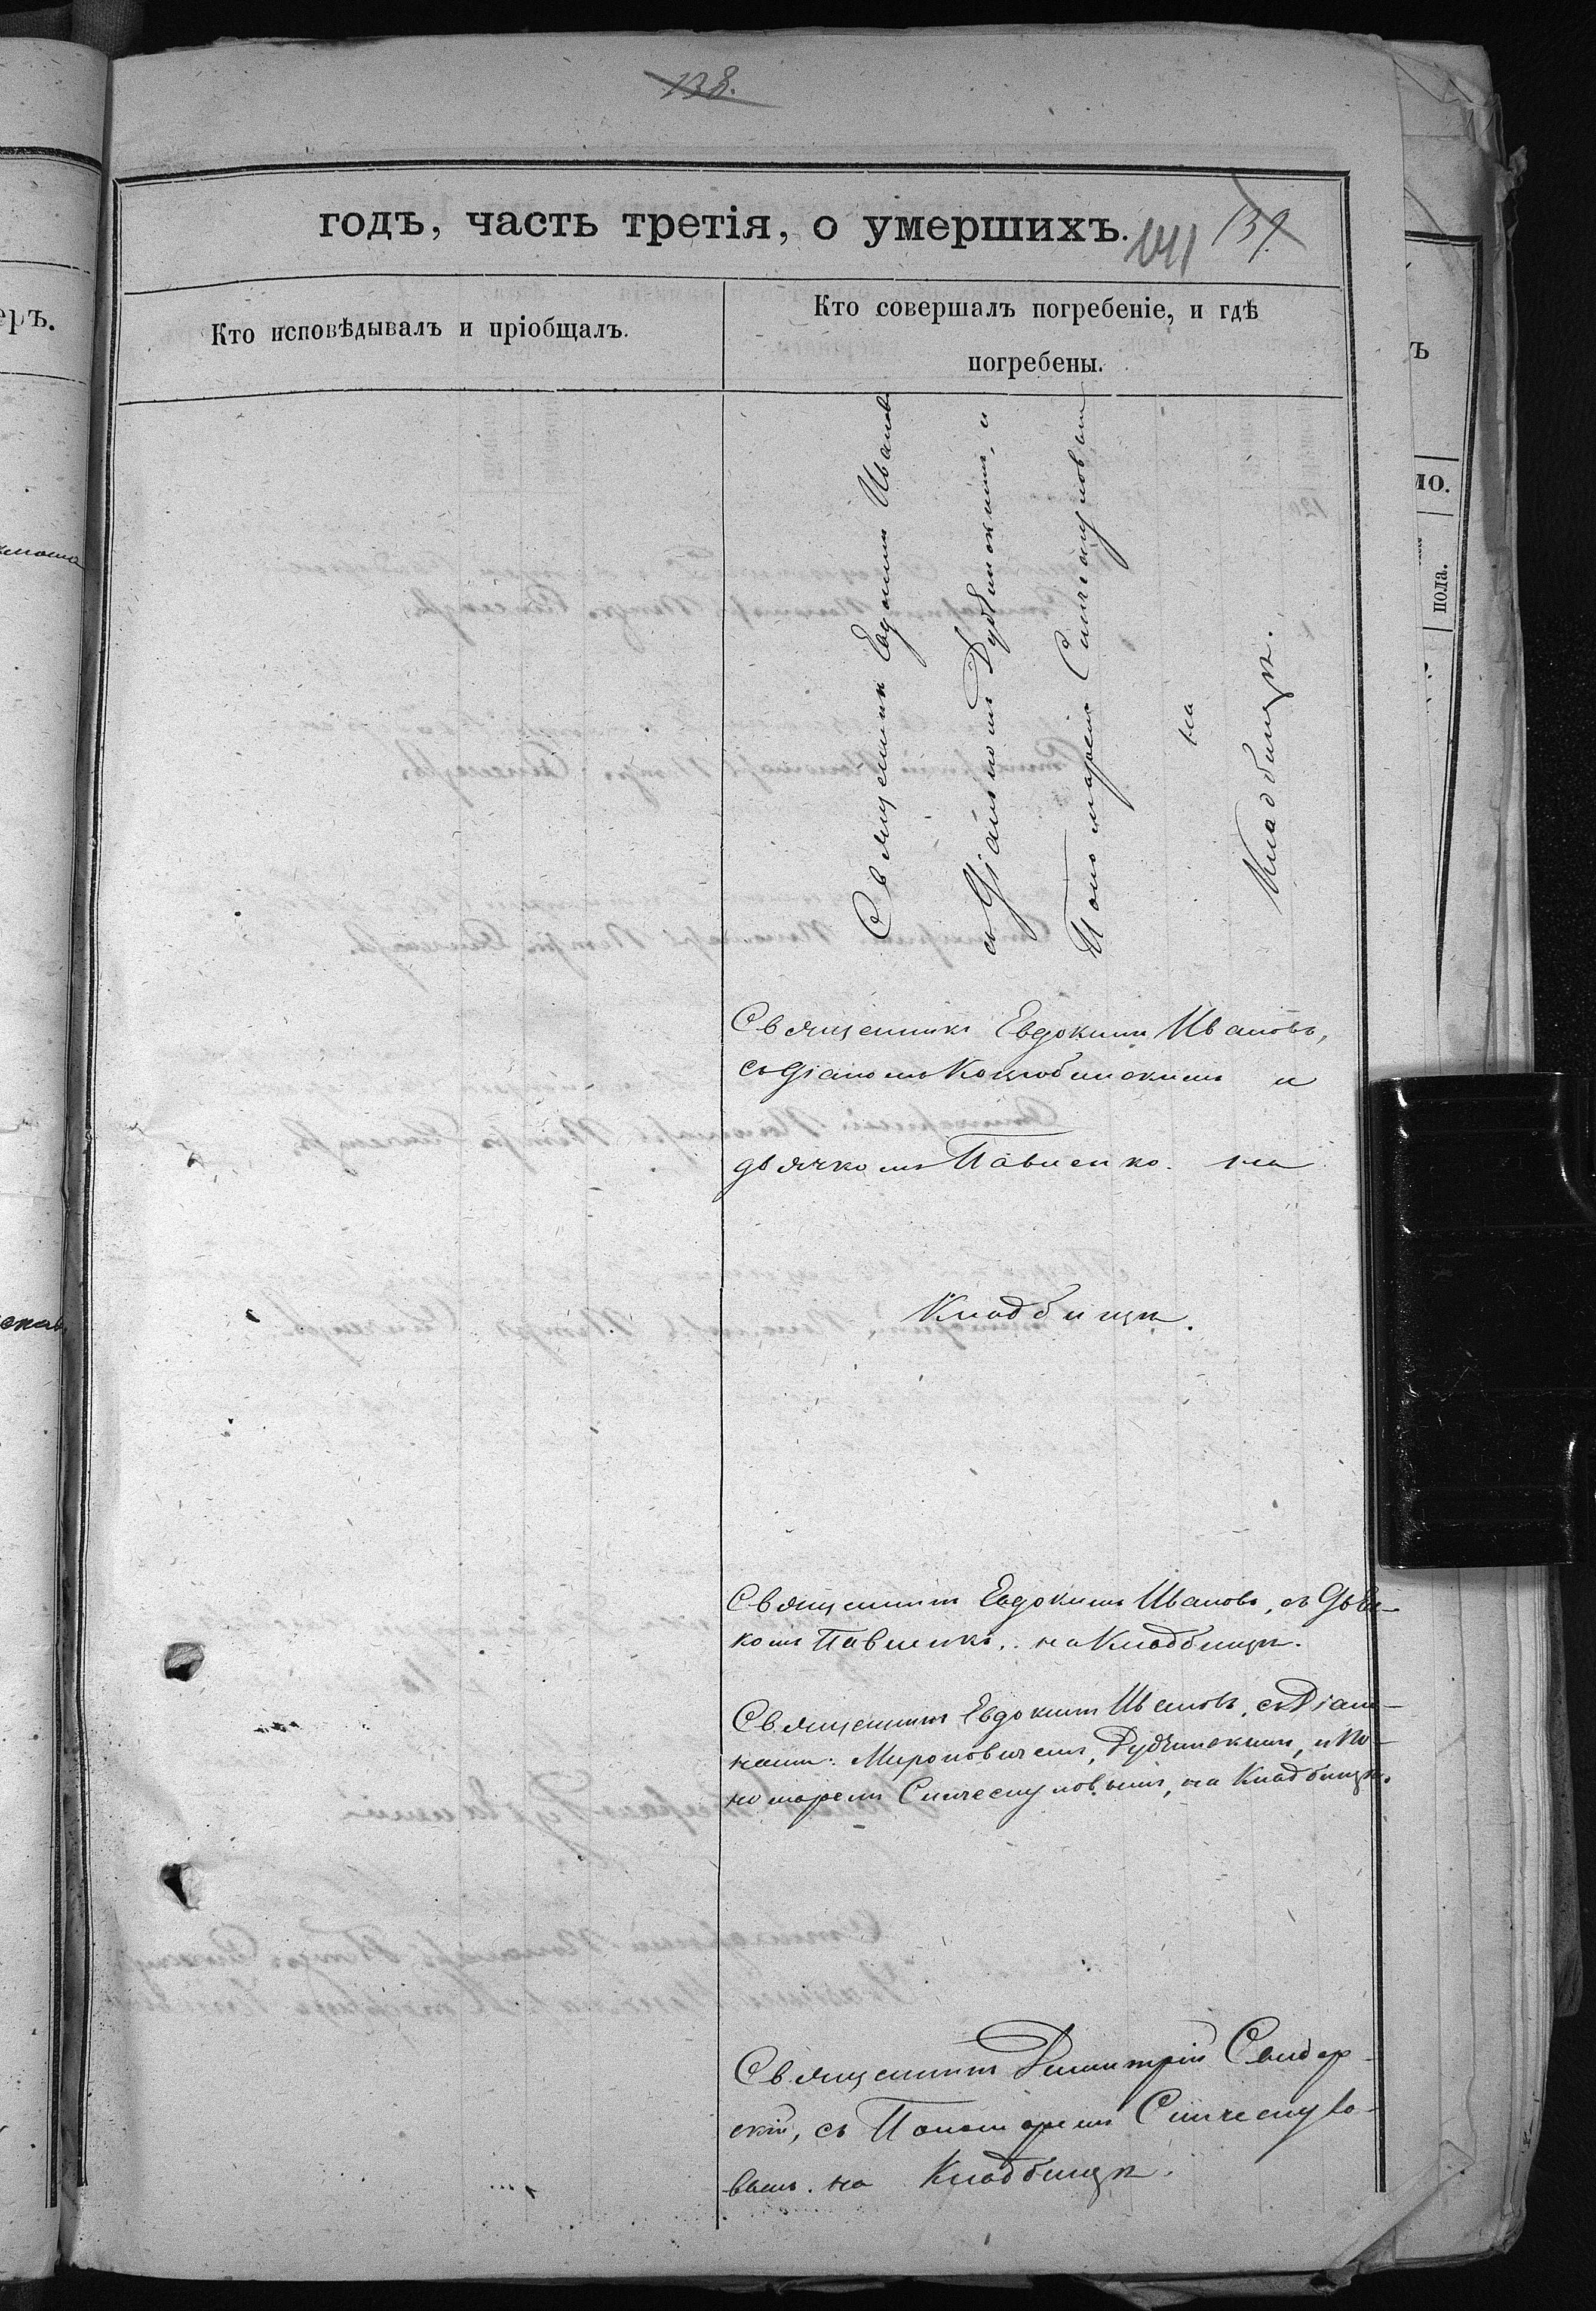 138.
годъ, часть третія, о умершихъ.
141 139.
Кто исповѣдывалъ и пріобщалъ.
Кто совершалъ погребеніе, и гдѣ
погребены.
Священник Евдоким Иванов
съ Діаконом Дудчинским, и
Пономарем
на
Кладбищѣ.
Священникъ Евдоким Ивановъ,
съ Діакономъ Коцюбинскимъ и
дьячкомъ Павленко. на
Кладбищѣ.
Священникъ Евдокимъ Ивановъ, съ Дьяч-
комъ Павленко. на Кладбищѣ.
Священникъ Евдоким Ивановъ, съ Діако-
нами: Мироновичемъ, Дудчинскимъ, и По-
номаремъ на Кладбищѣ.
Священникъ Димитрій Сандер-
скій, съ Пономаремъ
вымъ. на Кладбищѣ.
еръ.
пола.